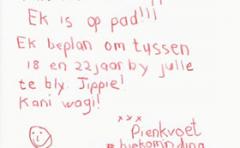 Ek is op pad!!!
Ek beplan om tussen
18 en 22 jaar by julle
te bly. Jippie!
Kani wagi!
xxx
Pienkvoet